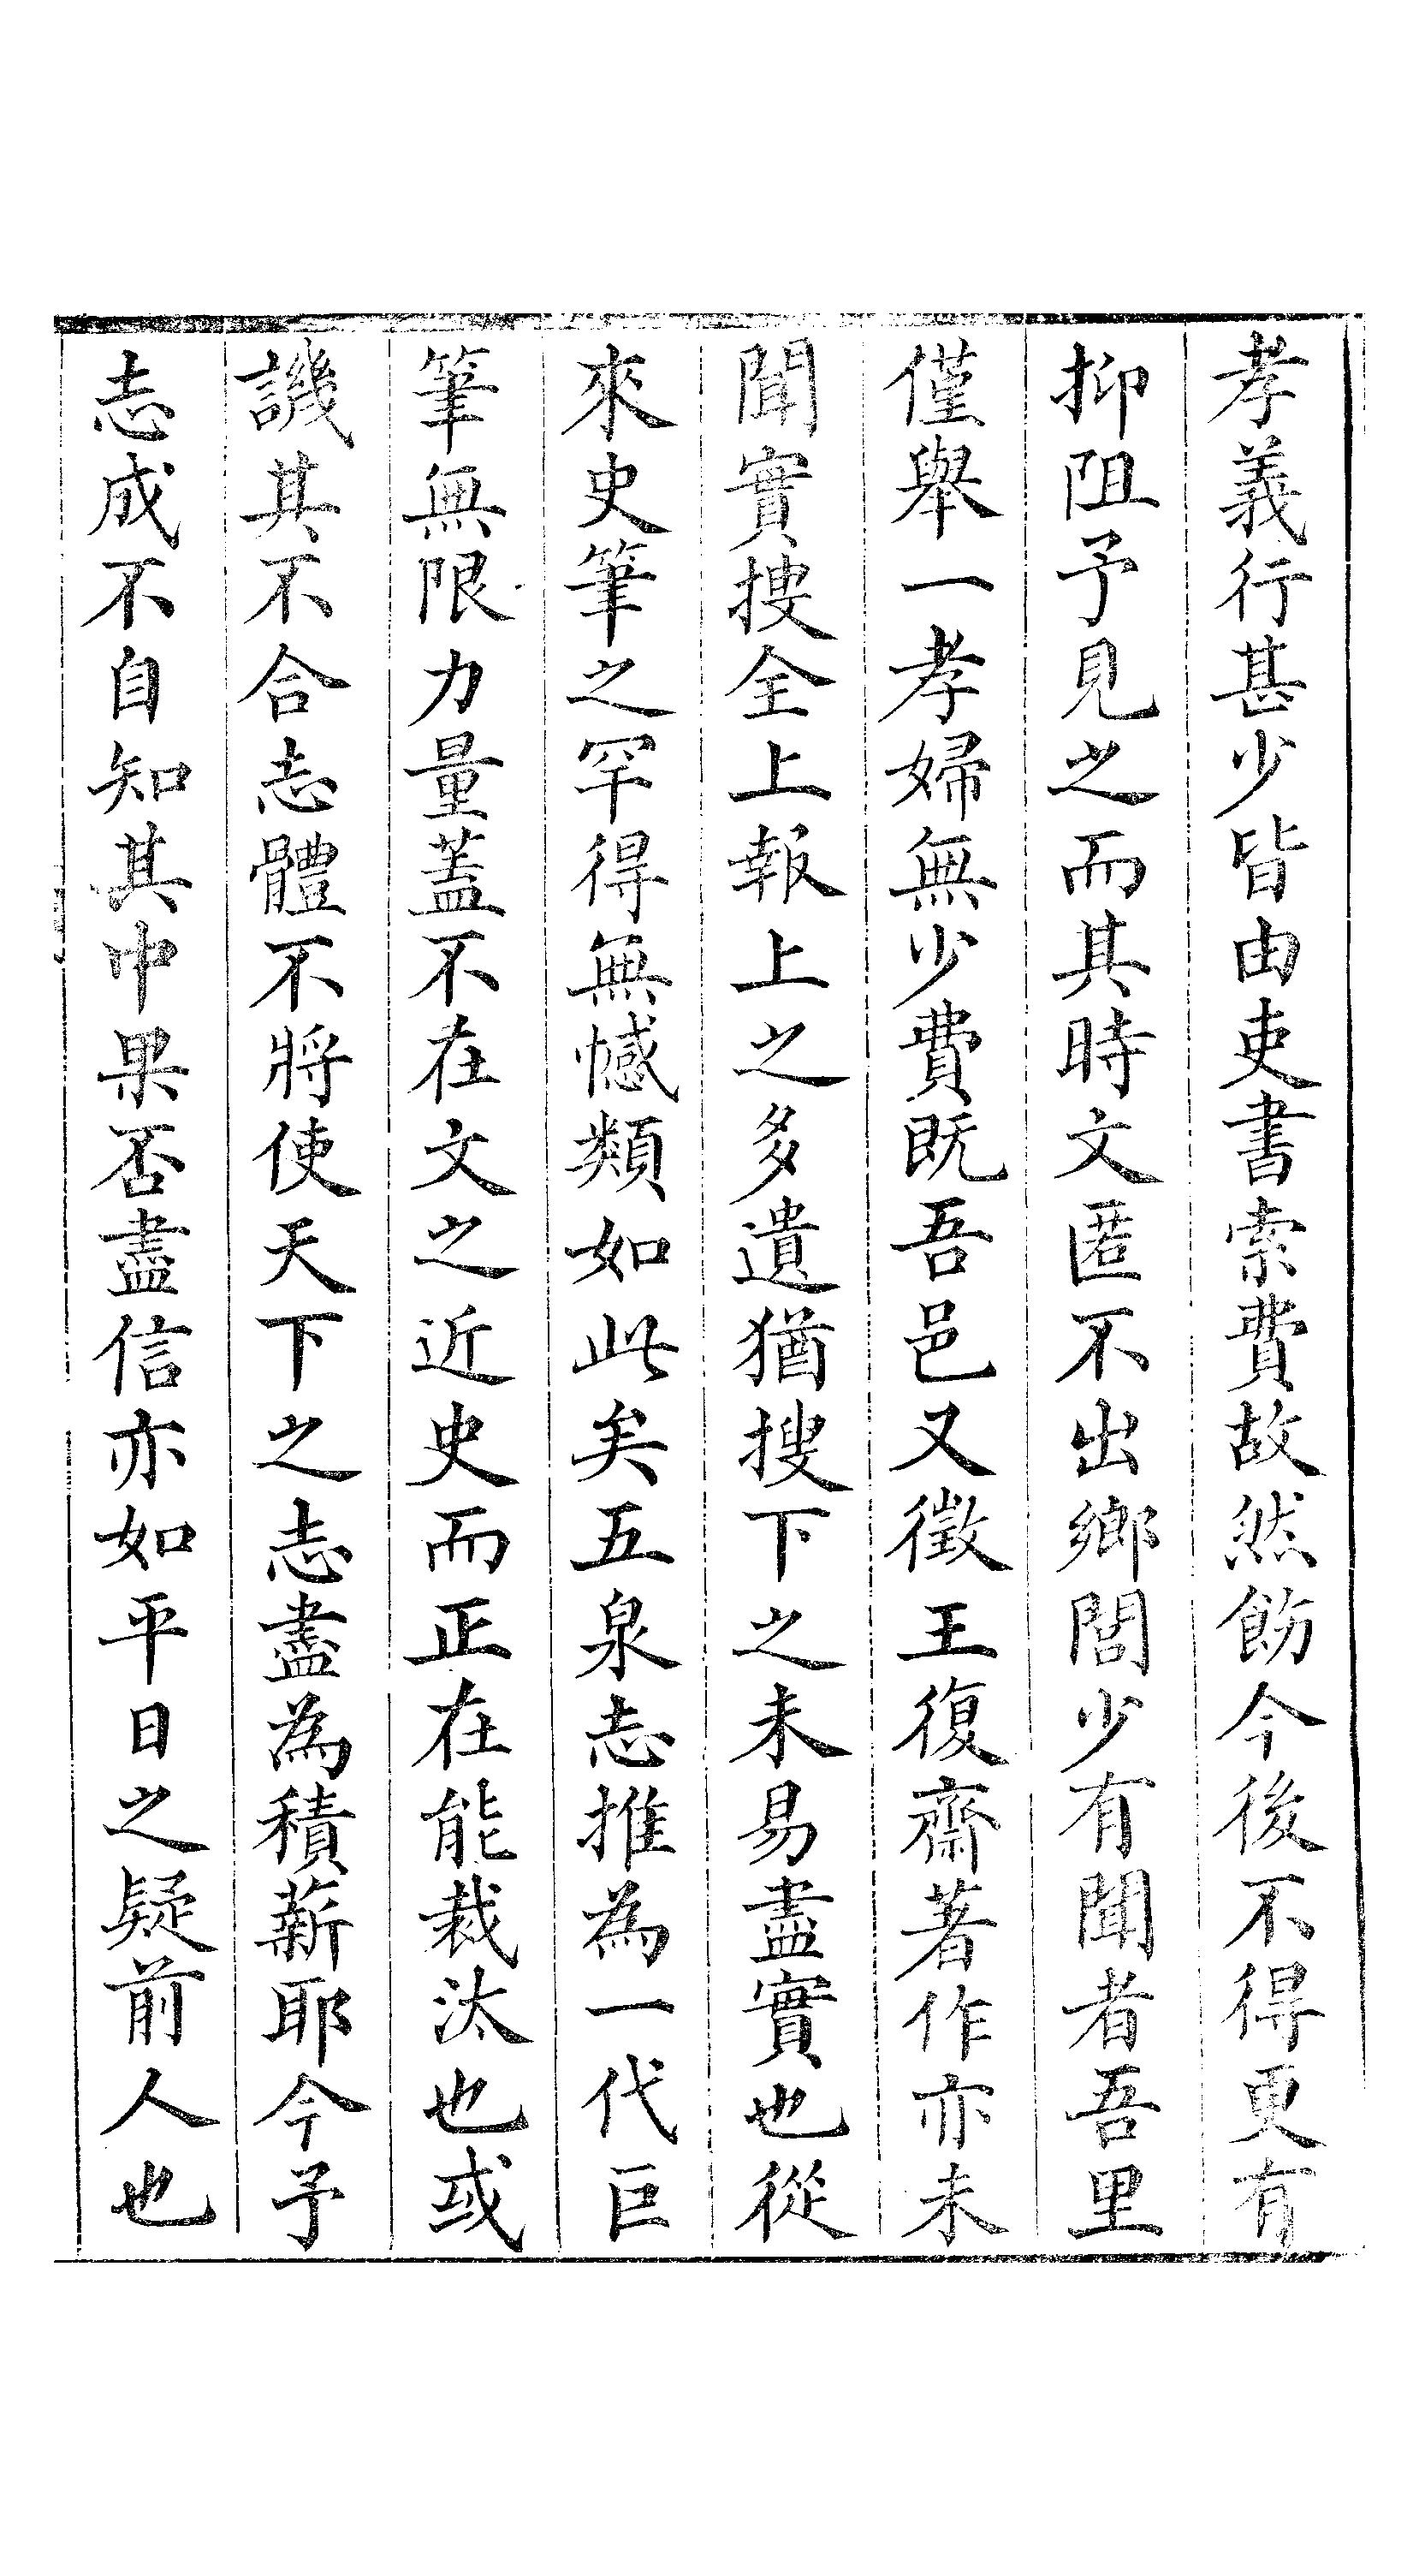 孝義行甚少皆由吏書索費故然飭今後不得更有
抑阻予見之而其時文匿不出鄉閭少有聞者吾里
僅舉一孝婦無少費既吾邑又徵王復齋著作亦未
聞實搜全上報上之多遺猶搜下之未易盡實也從
來史筆之罕得無憾類如此矣五泉志推為一代巨
筆無限力量蓋不在文之近史而正在能裁汰也或
譏其不合志體不將使天下之志盡為積薪耶今予
志成不自知其中果否盡信亦如平日之疑前人也